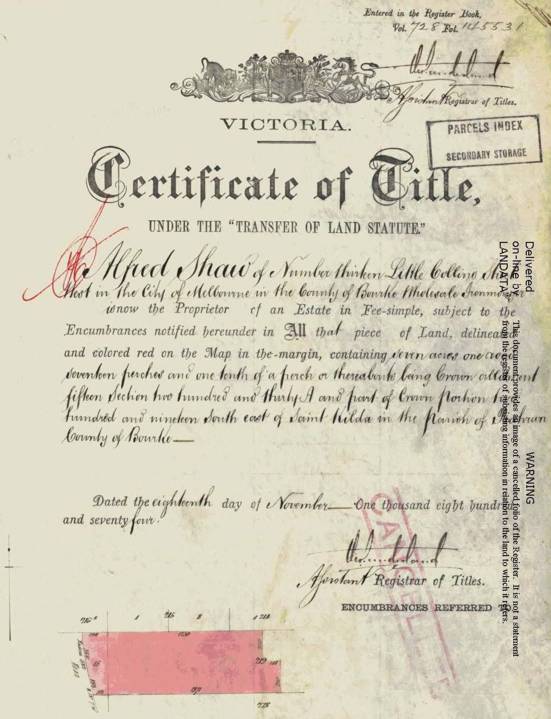 Entered in the Register Book,
Vol. 728 Fol. 145531
Assistant Registrar of Titles.
VICTORIA.
PARCELS INDEX
SECONDARY STORAGE
Certificate of Title,
UNDER THE "TRANSFER OF LAND STATUTE."
Alfred Shaw of Number thirteen Little Collins
West in the City of Melbourne in the County of Bourke Wholesale Ironmonger
is now the Proprietor of an Estate in Fee-simple, subject to the
Encumbrances notified hereunder in All that piece of Land, delineated
and colored red on the Map in the margin, containing seven acres one rood
seventeen perches and one tenth of a perch or thereabouts being Crown allotment
fifteen Section two hundred and thirty A and part of Crown Portion
hundred and nineteen South east of Saint Kilda in the Parish of
County of Bourke
Dated the eighteenth day of November One thousand eight hundred
and seventy four.
CANCELLED
Assistant Registrar of Titles.
ENCUMBRANCES REFERRED
Delivered
on-line by
LANDATA
WARNING
This document provides an image of a cancelled folio of the Register. It is not a statement
from the register of subsisting information in relation to the land to which it refers.